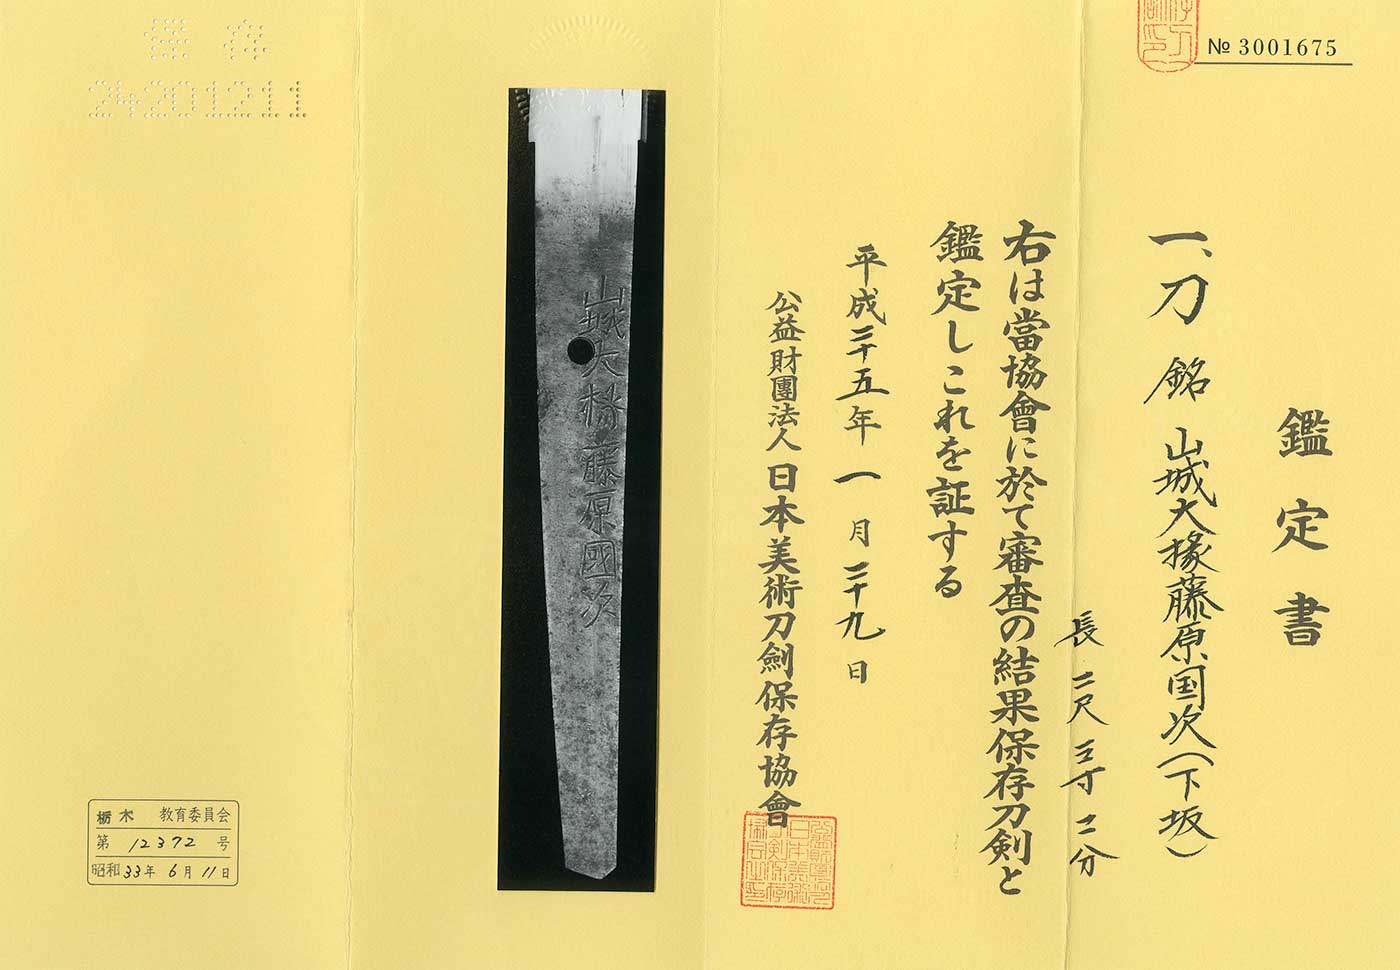 № 3001675
鑑定書
一、刀 銘 山城大掾藤原国次(下坂)
長 二尺三寸二分
右は當協會に於て審査の結果保存刀剣と
鑑定しこれを証する
平成二十五年一月二十九日
公益財團法人 日本美術刀劍保存協會
山城大掾藤原國次
保存
24201211
栃木 教育委員会
第 12372 号
昭和 33年 6月 11日